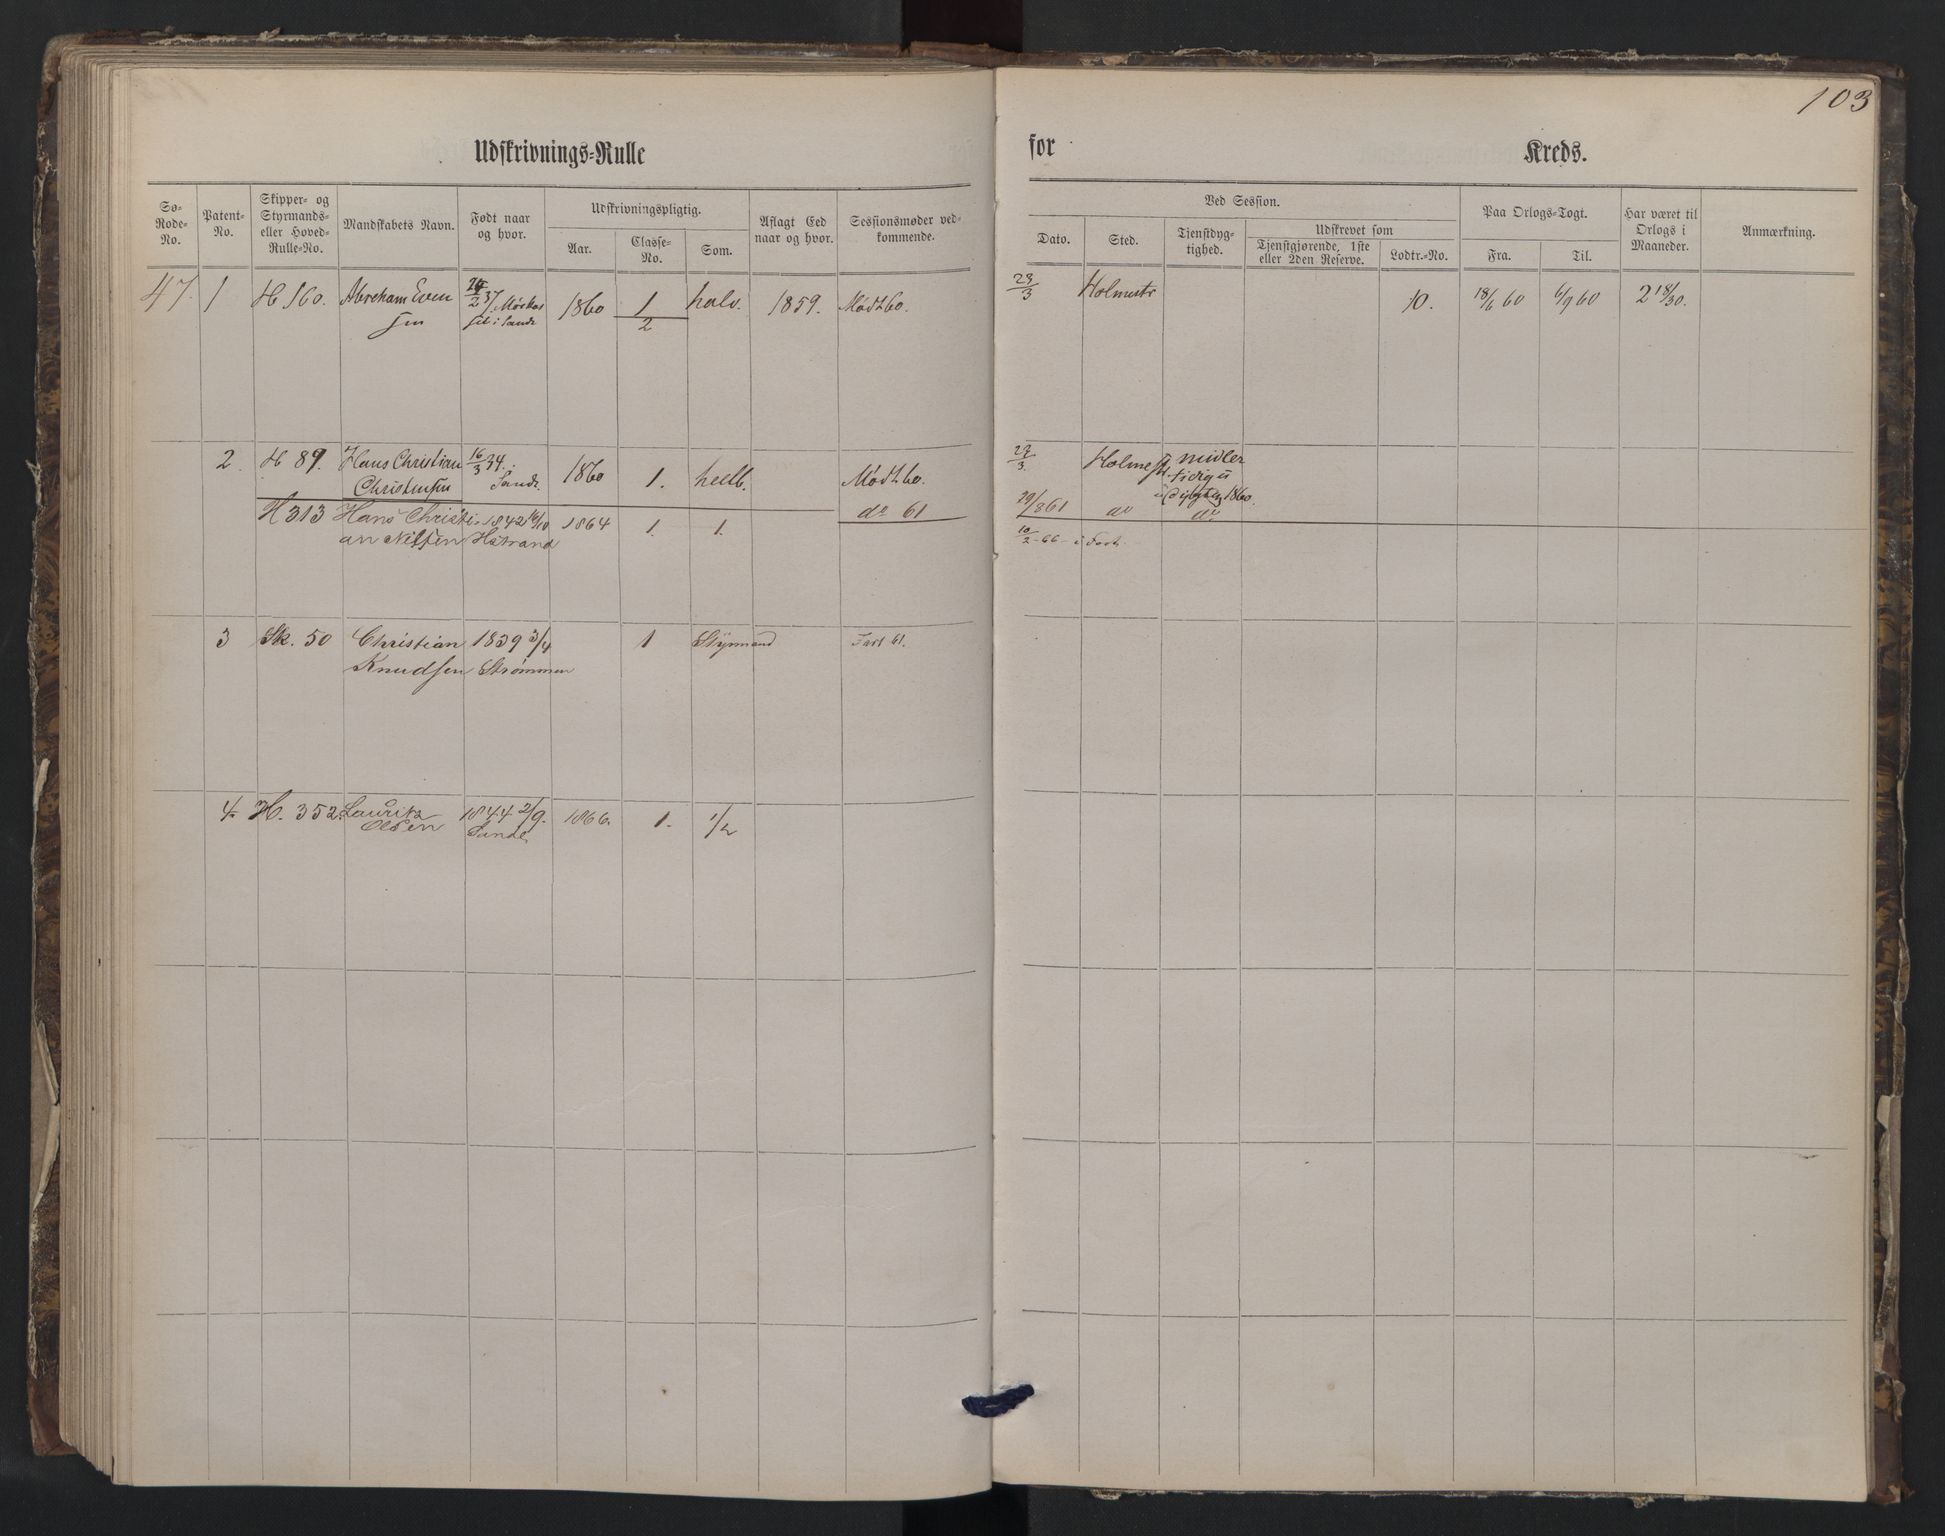 103
Udskrivnings-Rulle for Kreds.
Sø-Rode-No.
Patent-No.
Skipper- og Styrmands- eller Hoved-Rulle-No.
Mandskabets Navn.
Født naar og hvor.
Udskrivningspligtig.
Aar.
Classe-No.
Som.
Aflagt Eed naar og hvor.
Sessionsmøder vedkommende.
Ved Session.
Dato.
Sted.
Tjenstdygtighed.
Udskrevet som
Tjenstgjørende, 1ste eller 2den Reserve.
Lodtr.-No.
Paa Orlogs-Togt.
Fra.
Til.
Har været til Orlogs i Maaneder.
Anmærkning.
47. 1 H 160. Abraham Even 1860 1 halv. 1859. Mødt 60. 23/3 Holmestr 10. 18/6 60 6/9 60 2 18/30.
sen i Sande 2
2. H 89. Hans Christian 16/3 34. 1860 1. heelb. Mødt 60. 23/3 Holmestr midler
Christensen Sande. tidig u
do 61 29/3 61 do 1860. do
H 313 Hans Christi 1842 1864 1. 1. 10/2 - 66 - i Fart.
an Nilsen Hstrand
3 Sk. 50 Christian 1839 3/4 1 Styrmand Fart 61.
Knudsen Strømmen
4. H. 352. Lauritz 1844 2/9. 1866. 1. 1/2
Olsen Sande.